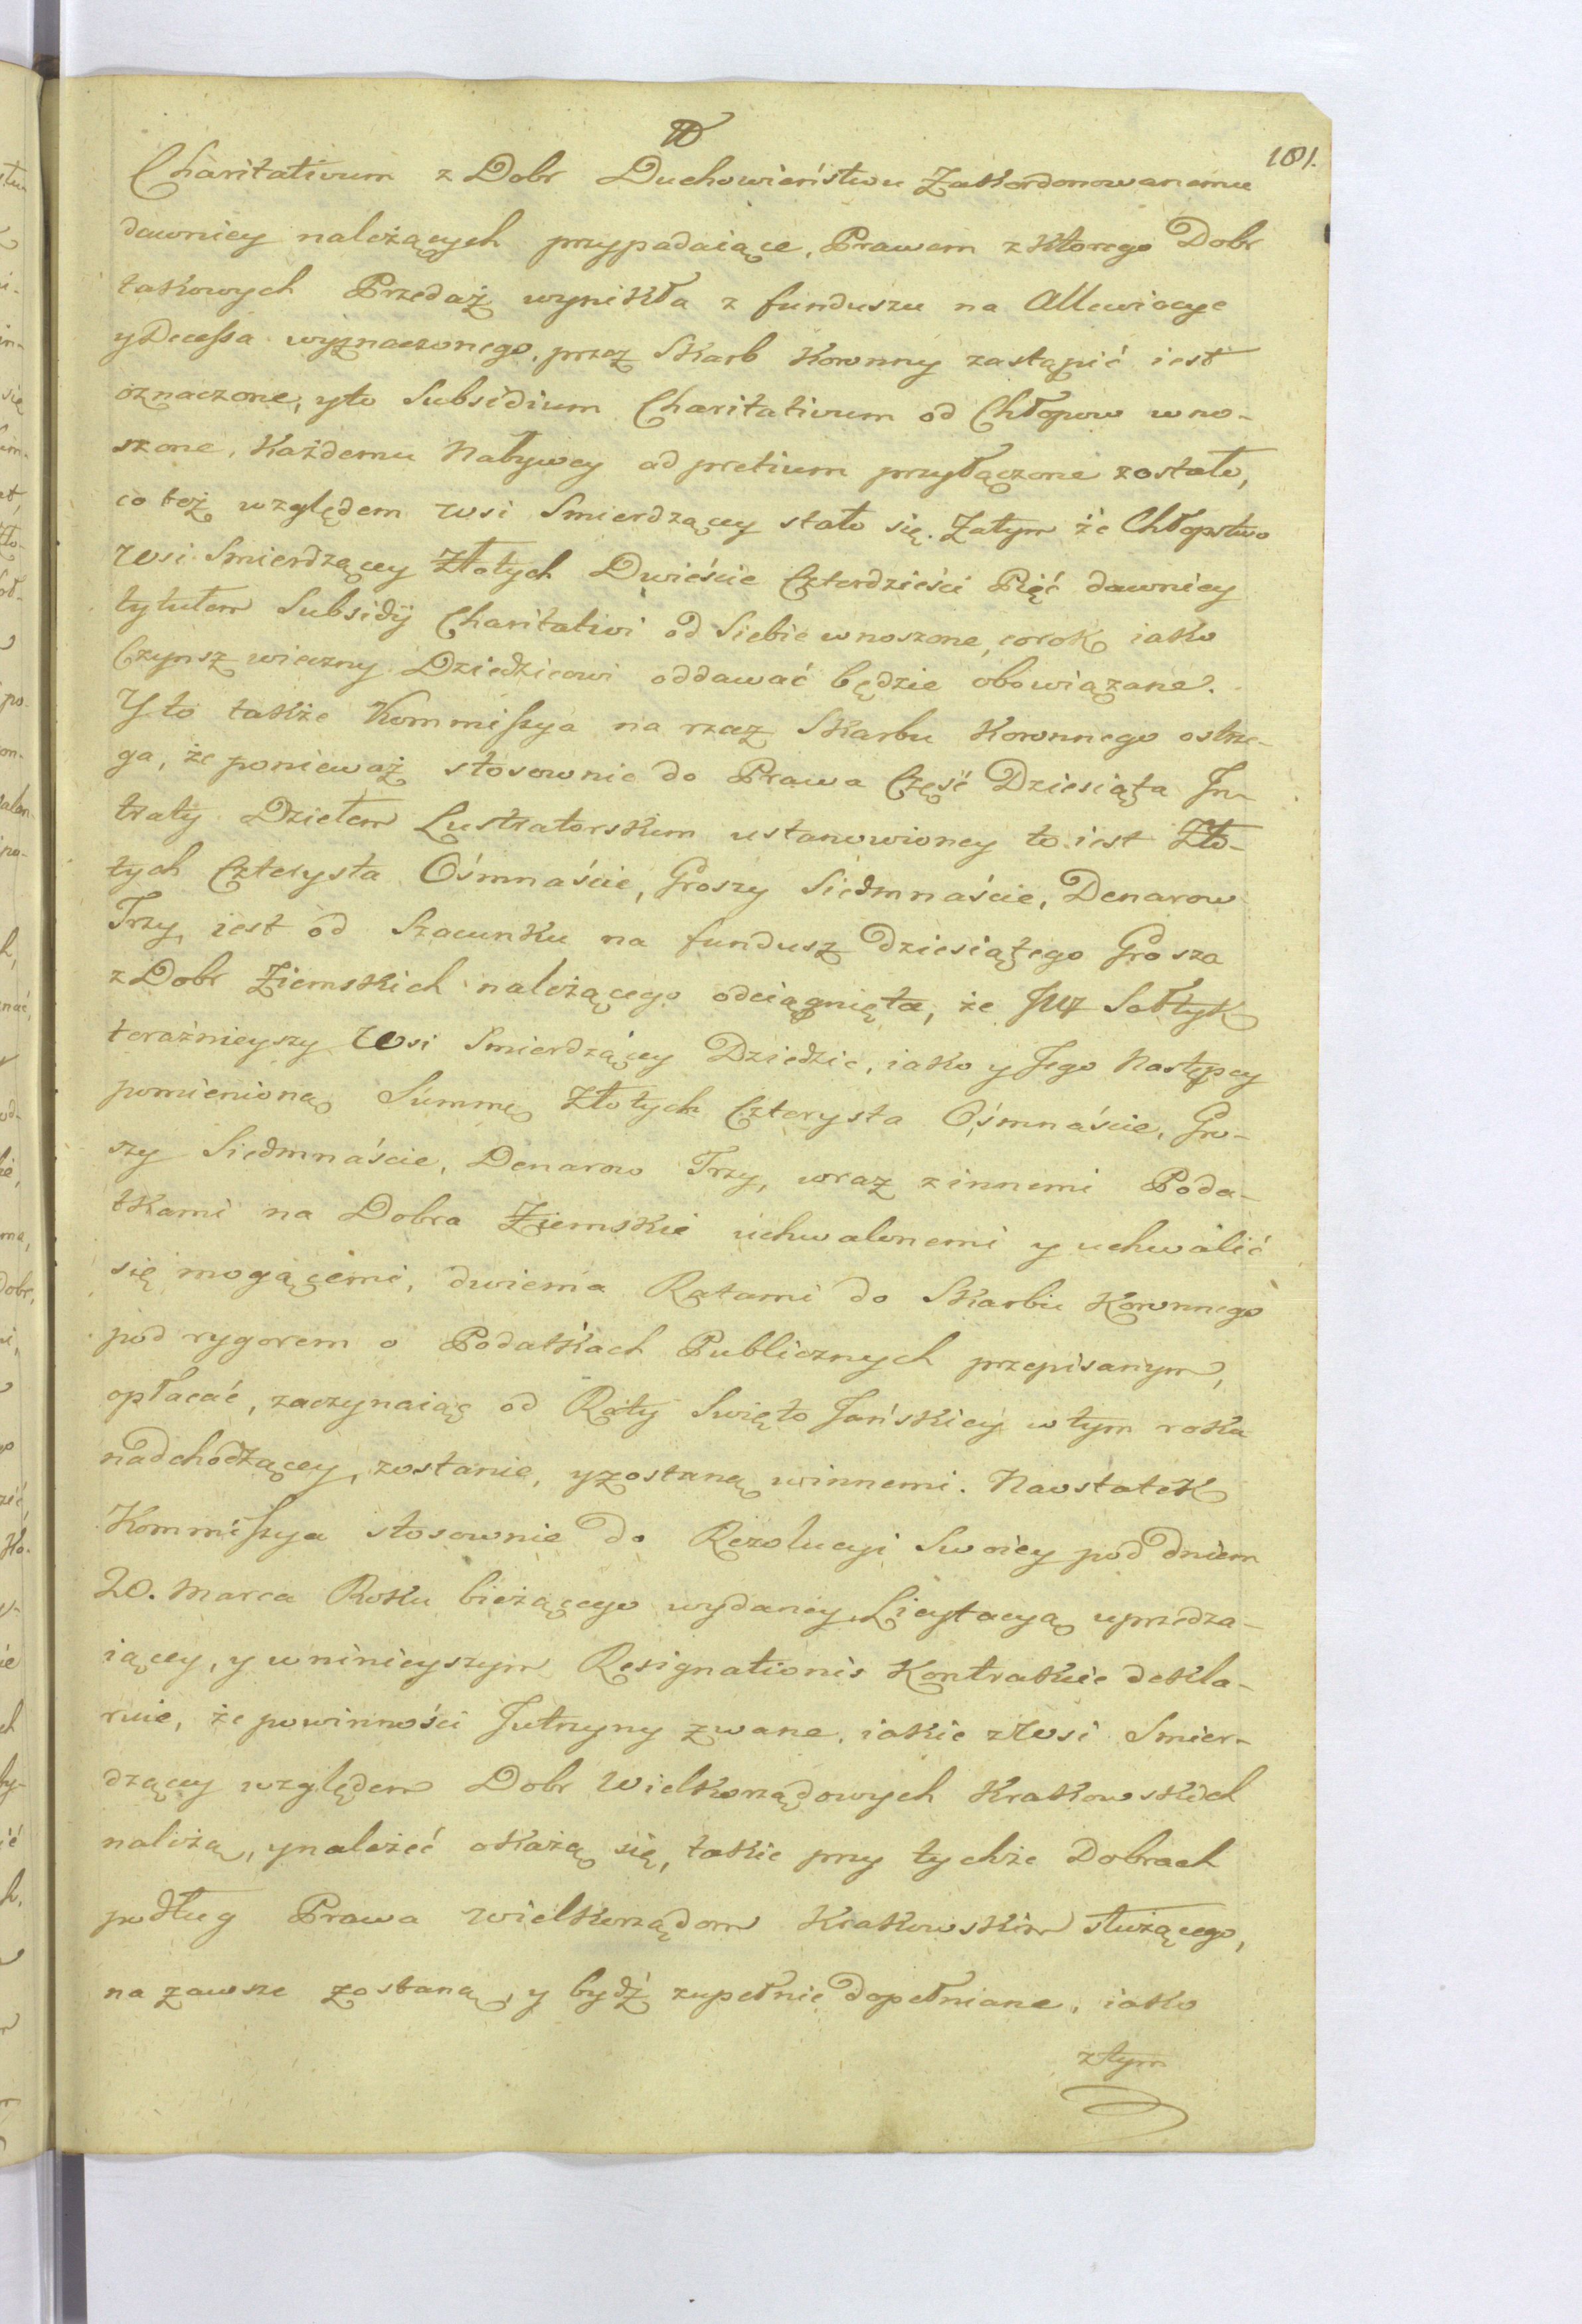 181.
Charitativum z Dobr Duchowieństwu Zakordonowanemu
dawniey należących przypadaiące, Prawem z ktorego Dobr
takowych Przedaż wynikła z funduszu na Allewiacye
y Decessa wyznaczonego, przez Skarb Koronny zastąpić iest
oznaczone, y to Subsidium Charitativum od Chłopow wno-
szone, Każdemu Nabywcy ad pretium przyłączone zostało,
co też względem Wsi Smierdzącey stało się. Zatym że Chłopstwo
Wsi Smierdzącey Złotych Dwieście Czterdzieści Pięć dawniey
tytułem Subsidij Charitativi od Siebie wnoszone, corok iako
Czynsz wieczny Dziedzicowi oddawać będzie obowiązane.
Y to także Kommissya na rzecz Skarbu Koronnego ostrze-
ga, że ponieważ stosownie do Prawa Część Dziesiąta In-
traty Dziełem Lustratorskim ustanowioney to iest Zło-
tych Czterysta Ośmnaście, Groszy Siedmnaście, Denarow
Trzy, iest od Szacunku na fundusz Dziesiątego Grosza
z Dobr Ziemskich należącego odciągnięta, że JW Sołtyk
teraźnieyszy Wsi Smierdzącey Dziedzic, iako y Jego Następcy
pomienioną Summę Złotych Czterysta Ośmnaście, Gro-
szy Siedmnaście, Denarow Trzy, wraz z innemi Poda-
tkami na Dobra Ziemskie uchwalonemi y uchwalić
się mogącemi, dwiema Ratami do Skarbu Koronnego
pod rygorem o Podatkach Publicznych przepisanym,
opłacać, zaczynaiąc od Raty Swięto Jańskiey w tym roku
nadchodzącey, zostanie, y zostaną winnemi. Naostatek
Kommissya stosownie do Rezolucyi Swoiey pod dniem
20. Marca Roku bieżącego wydaney Licytacyą uprzedza-
iącey, y w ninieyszym Resignationis Kontrakcie dekla-
ruie, że powinności Jutrzyny zwane, iakie z Wsi Smier-
dzącey względem Dobr Wielkorządowych Krakowskich
należą, y należeć okażą się, takie przy tychże Dobrach
podług Prawa Wielkorządom Krakowskim służącego,
na zawsze zostaną, y bydź zupełnie dopełniane, iako
z tym